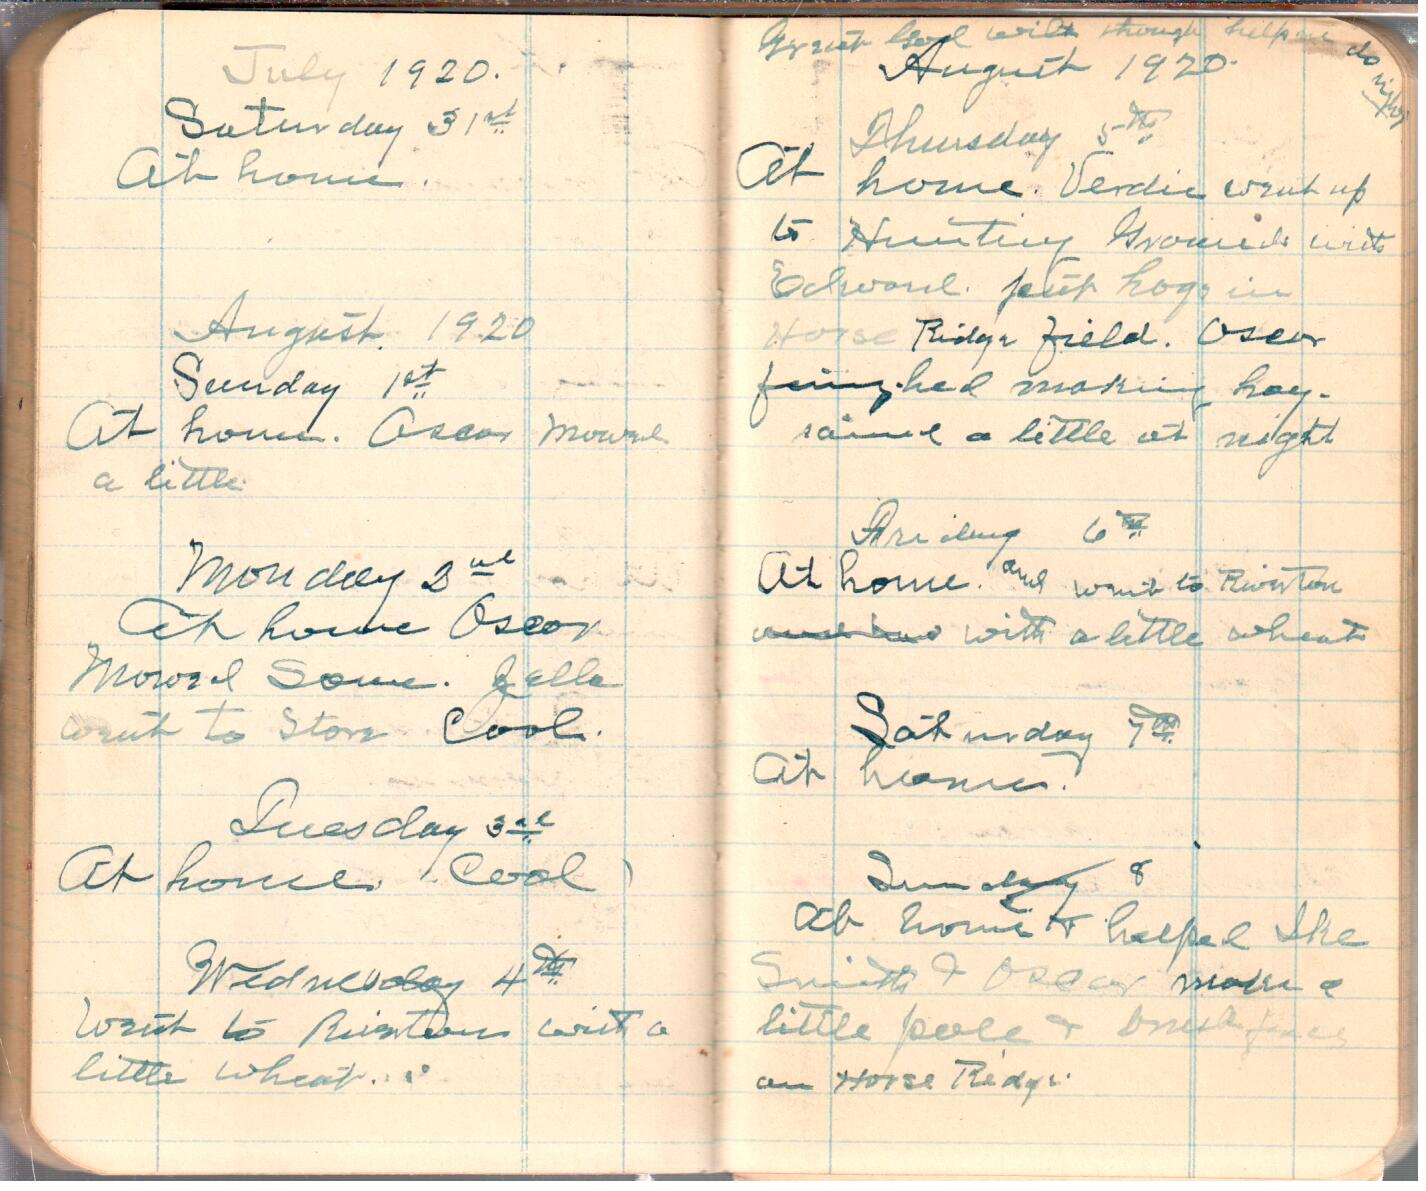 July 1920.
Saturday 31st
At home.
August 1920
Sunday 1st
At home. Oscar Mowed
a little
Monday 2nd
At home Oscar
Mowed Some. Zella
went to Store Cool.
Tuesday 3rd
At home. Cool
Wednesday 4th
Went to Riverton with a
little wheat.
God with though help me do
right
August 1920.
Thursday 5th
At home. Verdie went up
to Hunting Grounds with
Edward. put hogs in
Horse Ridge field. Oscar
finished making hay.
rained a little at night
Friday 6th
At home. and went to Riverton
with a little wheat
Saturday 7th
At home.
Sunday 8
At home & helped Ike
Smith & Oscar make a
little pole & brush fence
on Horse Ridge.